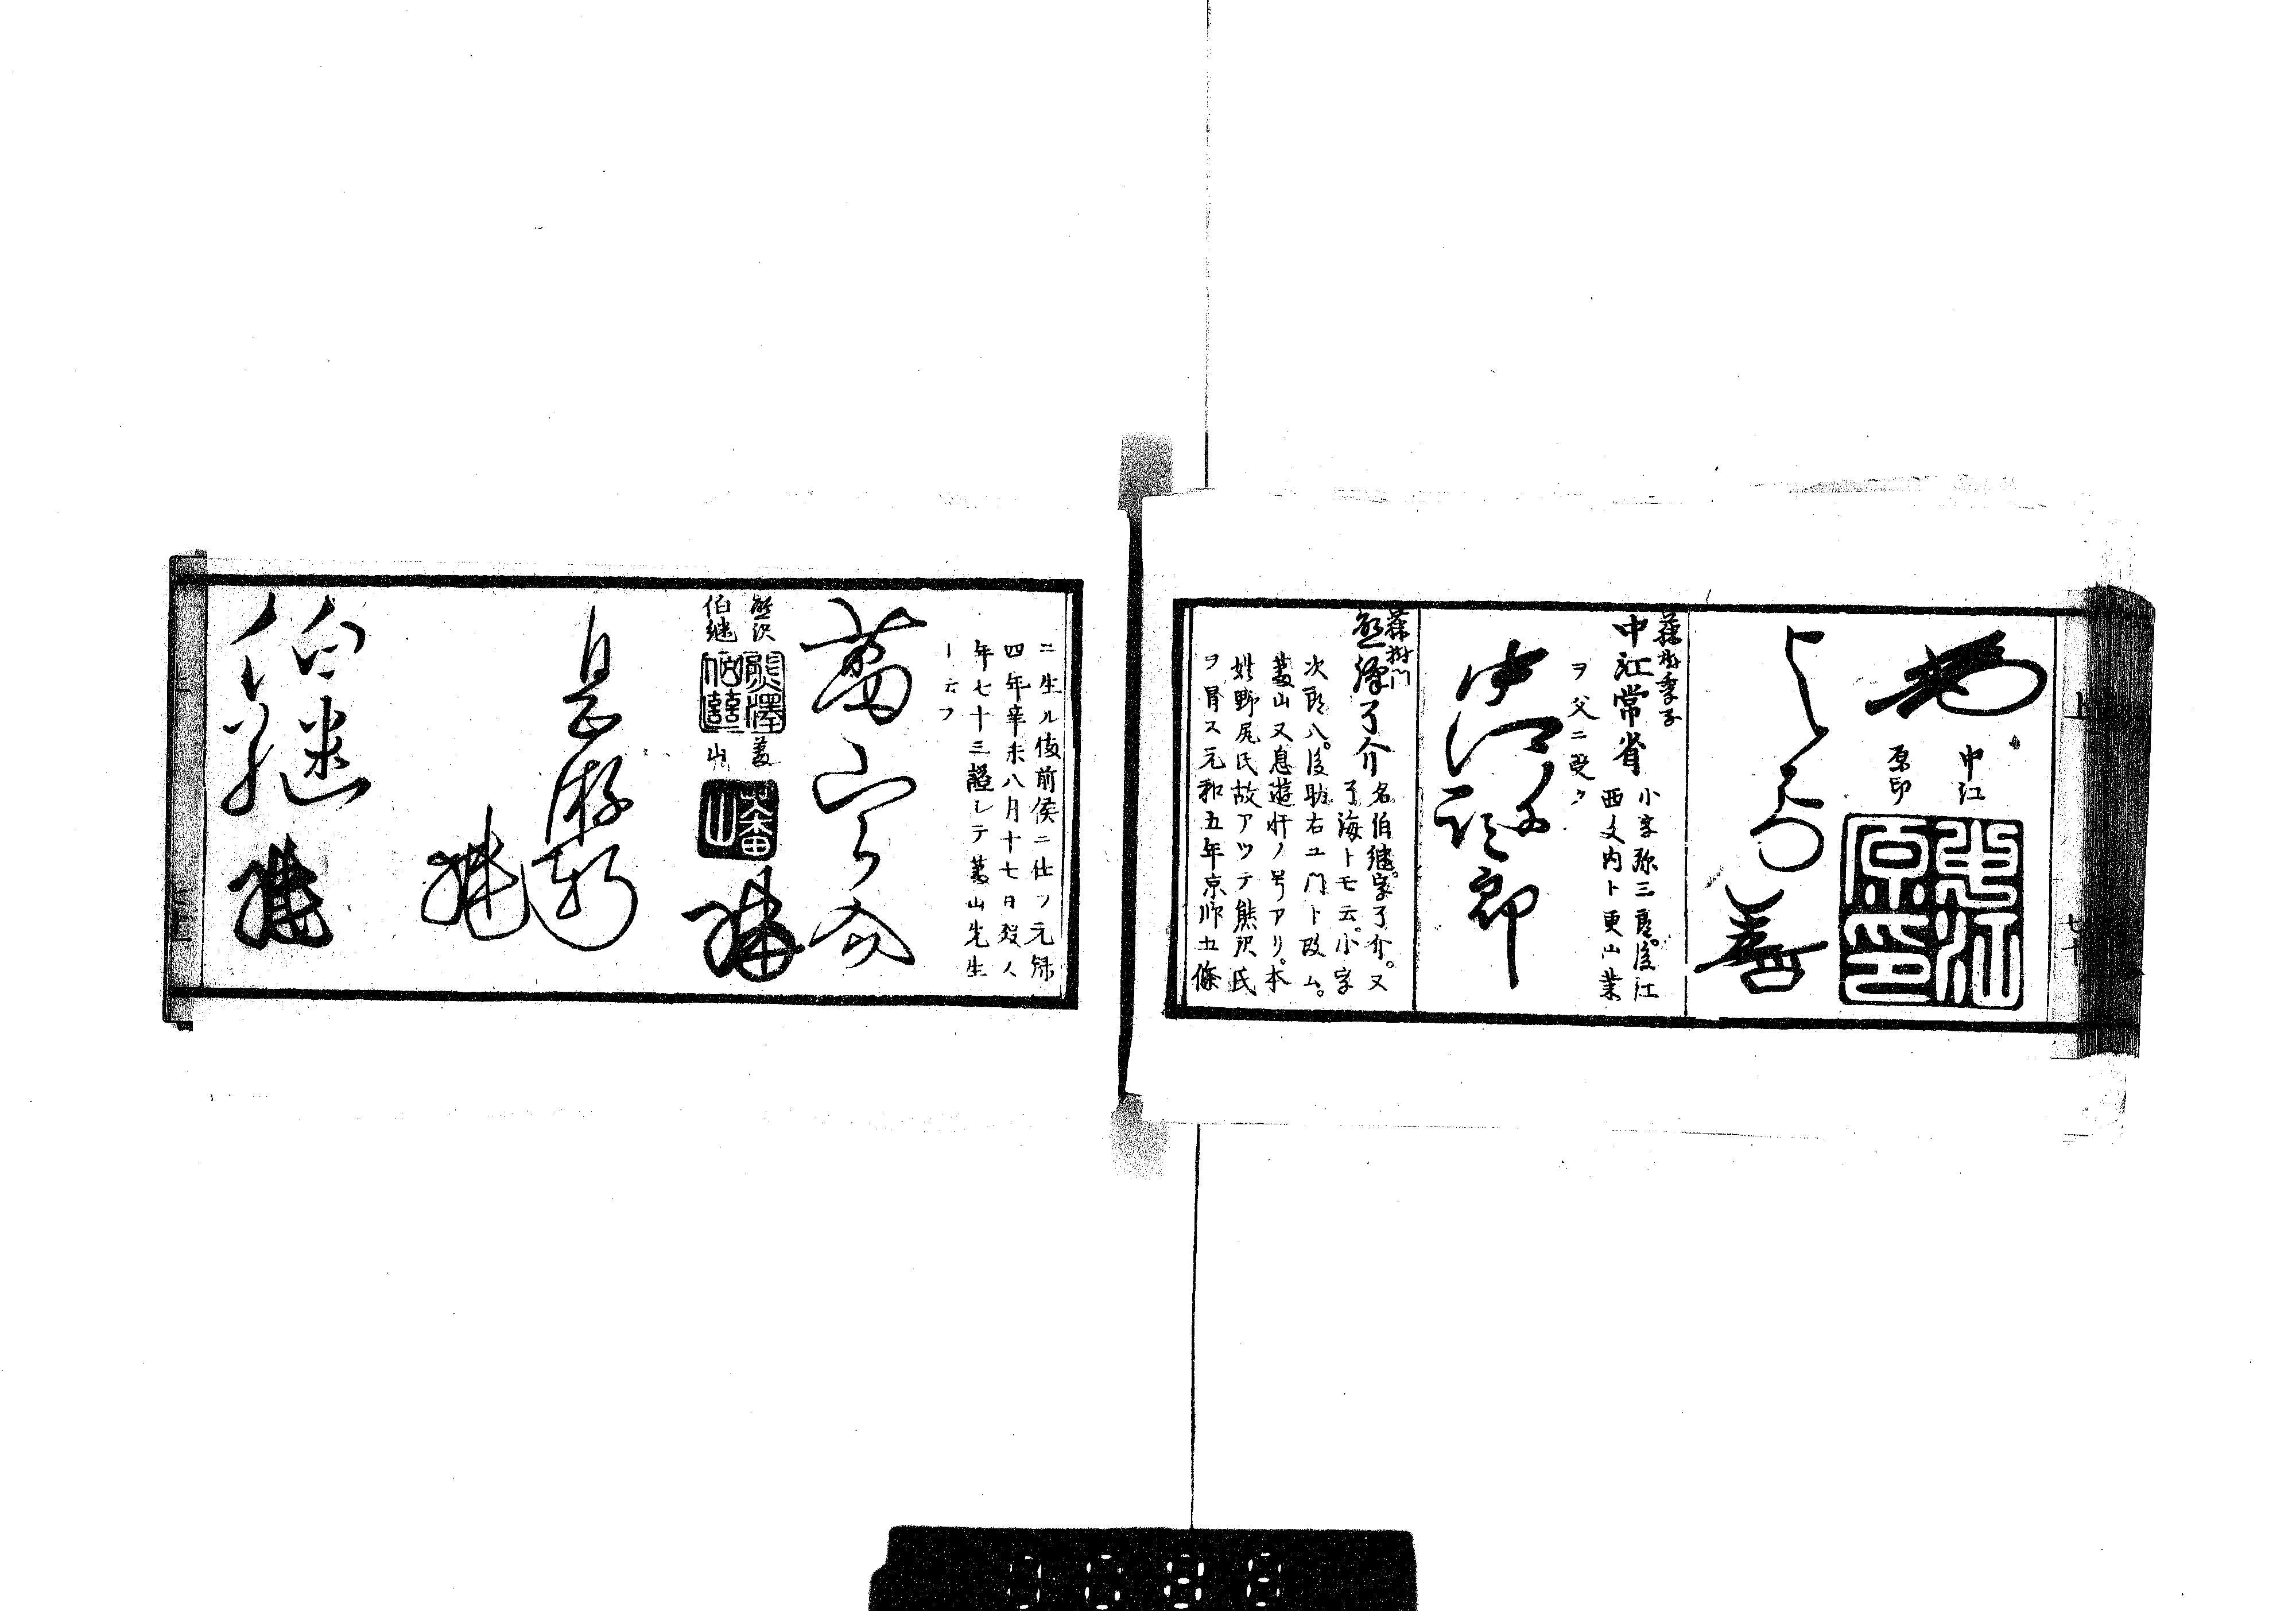 上
七十
中江
原印
中江
原印
藤樹季子
中江常省
小字弥三郎後江
西文内ト更ム業
ヲ父ニ受ク
藤樹門
熊澤了介
名伯継字了介又
了海トモ云小字
次郎八後助右ユ門ト改ム
蕃山又息遊軒ノ号アリ本
姓野尻氏故アツテ熊沢氏
ヲ冐ス元和五年京師五條
ニ生ル俻前侯ニ仕フ元禄
四年辛未八月十七日殁人
年七十三謚シテ蕃山先生
ト云フ
蕃山了介
熊沢
伯継
熊澤
伯継
蕃
山
蕃山
息游軒
伯継